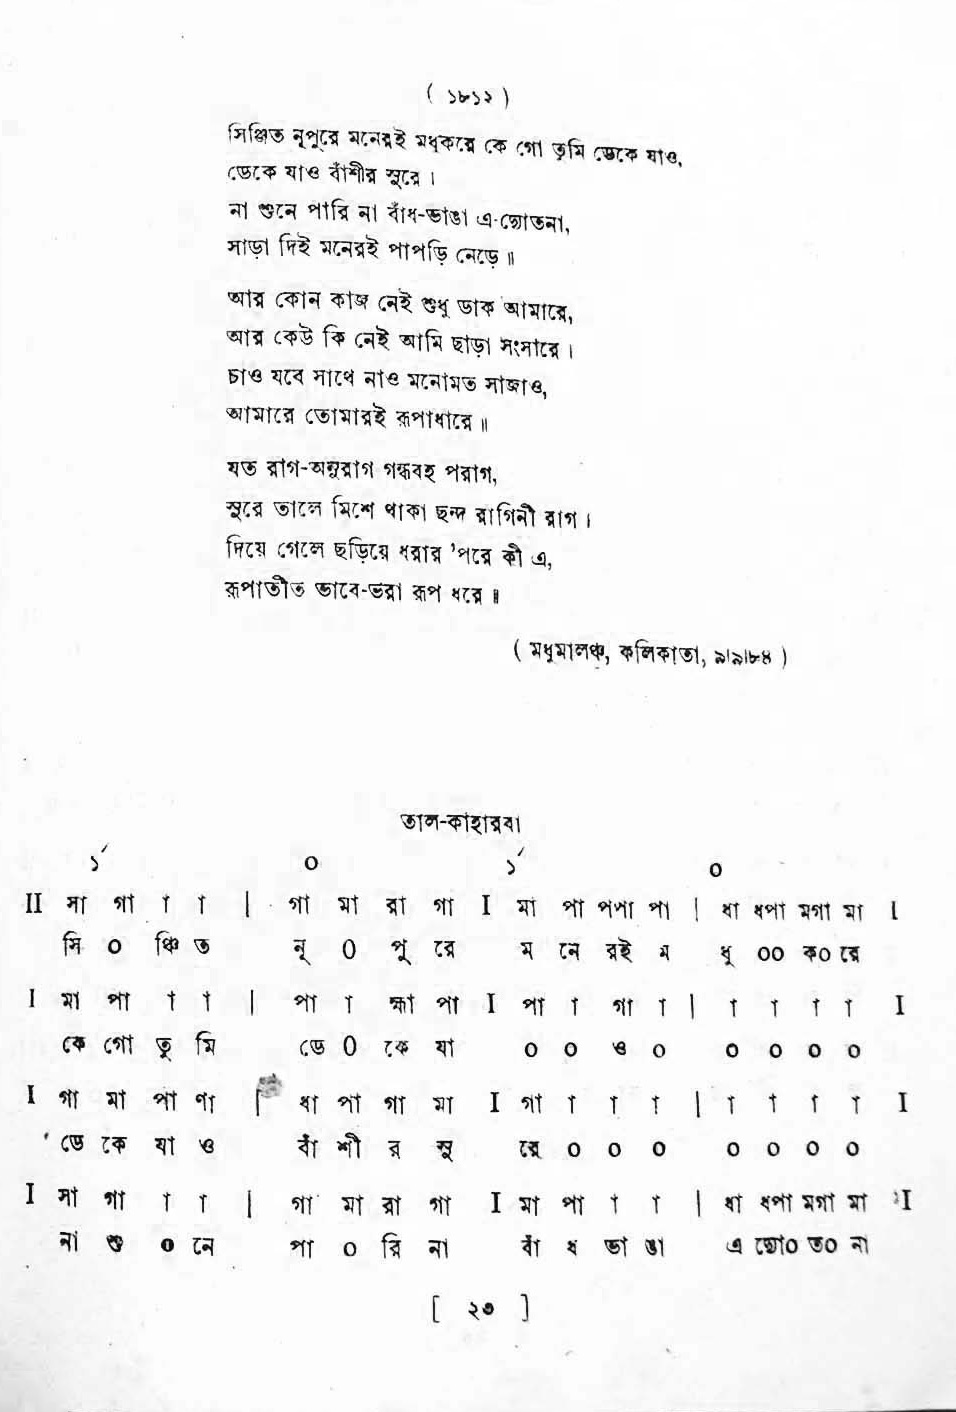 ( ১৮১২ )
সিঞ্জিত নূপুরে মনেরই মধুকরে কে গো তুমি ডেকে যাও,
ডেকে যাও বাঁশীর সুরে ।
না শুনে পারি না বাঁধ-ভাঙা এ-দ্যোতনা,
সাড়া দিই মনেরই পাপড়ি নেড়ে ॥
আর কোন কাজ নেই শুধু ডাক আমারে,
আর কেউ কি নেই আমি ছাড়া সংসারে ।
চাও যবে সাথে নাও মনোমত সাজাও,
আমারে তোমারই রূপাধারে ॥
যত রাগ-অনুরাগ গন্ধবহ পরাগ,
সুরে তালে মিশে থাকা ছন্দ রাগিনী রাগ ।
দিয়ে গেলে ছড়িয়ে ধরার ’পরে কী এ,
রূপাতীত ভাবে-ভরা রূপ ধরে ॥
( মধুমালঞ্চ, কলিকাতা, ৯।৯।৮৪ )
তাল-কাহারবা
১´ ০ ১´ ০
II সা গা া া | গা মা রা গা I মা পা পপা পা | ধা ধপা মগা মা I
সি ০ ঞ্চি ত নূ ০ পু রে ম নে রই ম ধু ০০ ক০ রে
I মা পা া া | পা া হ্মা পা I পা া গা া | া া া া I
কে গো তু মি ডে ০ কে যা ০ ০ ও ০ ০ ০ ০ ০
I গা মা পা ণা | ধা পা গা মা I গা া া া | া া া া I
ডে কে যা ও বাঁ শী র সু রে ০ ০ ০ ০ ০ ০ ০
I সা গা া া | গা মা রা গা I মা পা া া | ধা ধপা মগা মা I
না শু ০ নে পা ০ রি না বাঁ ধ ভা ঙা এ দ্যো০ ত০ না
[ ২৩ ]